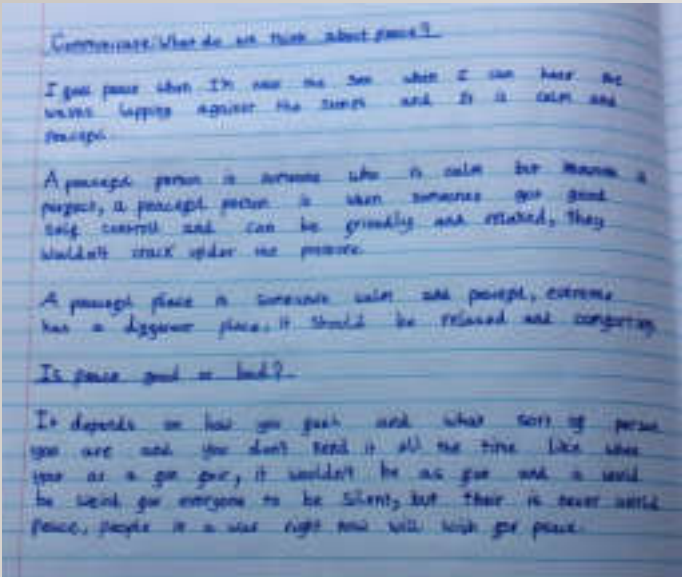 Communicate: What do we think about peace?
I feel peace when I'm near the sea when I can hear the
waves lapping against the and it is calm and
peaceful.
A peaceful person is someone who is calm but
perfect, a peaceful person is when someones got good
self control and can be friendly and relaxed, they
wouldn't crack under the pressure.
A peaceful place is calm and peaceful, everyone
has a different place, it should be relaxed and comforting
Is peace good or bad?
It depends on how you feel and what sort of person
you are and you don't need it all the time like when
your at a fun fair, it wouldn't be as fun and it would
be weird for everyone to be silent, but their is never world
peace, people in a war right now will wish for peace.